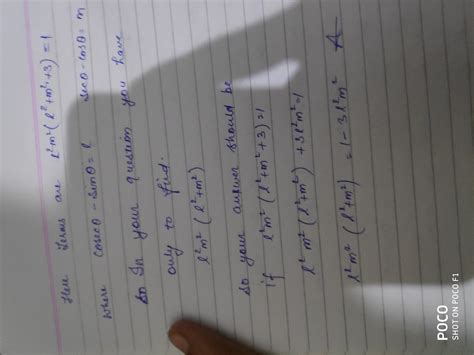 Here terms are l²m²(l²+m²+3)=1
where cosecθ-sinθ=l secθ-cosθ=m
So In your question you have
only to find.
l²m²(l²+m²)
So your answer should be
if l²m²(l²+m²+3)=1
l²m²(l²+m²)+3l²m²=1
l²m²(l²+m²)=1-3l²m²
POCO
SHOT ON POCO F1